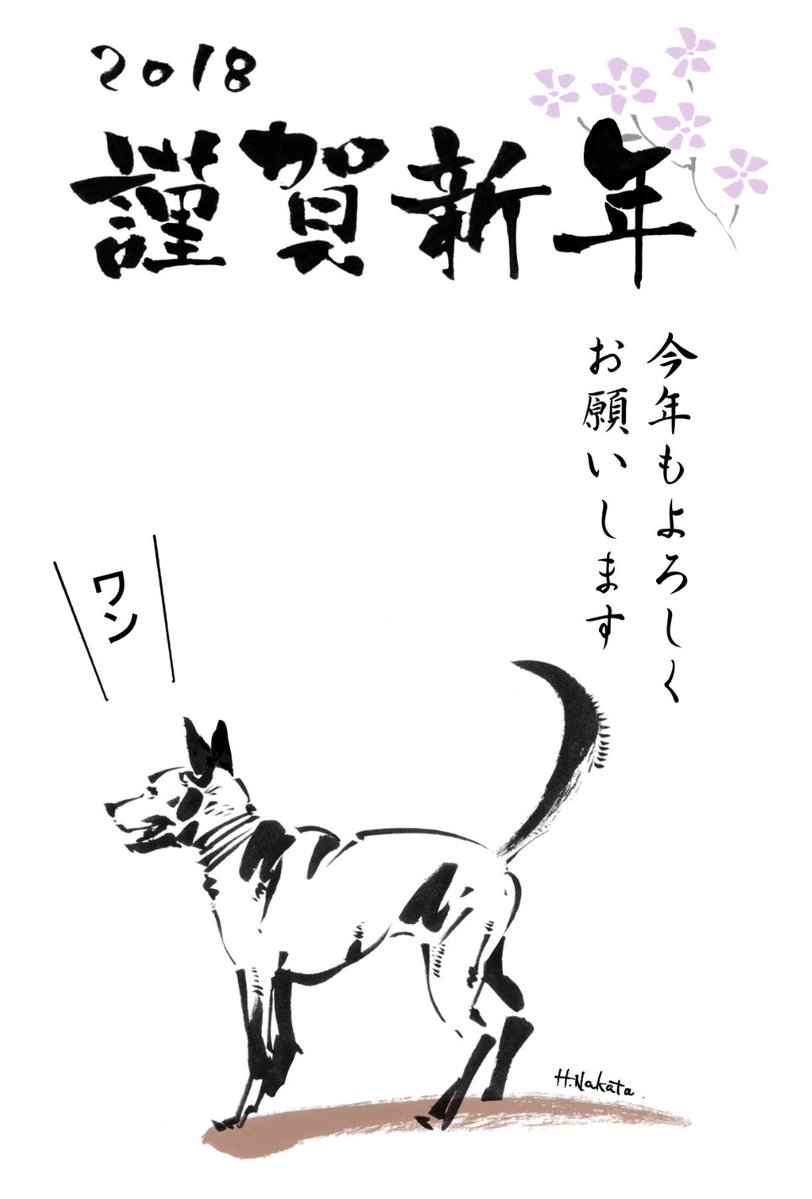 2018
謹賀新年
今年もよろしく
お願いします
ワン
H.Nakata.